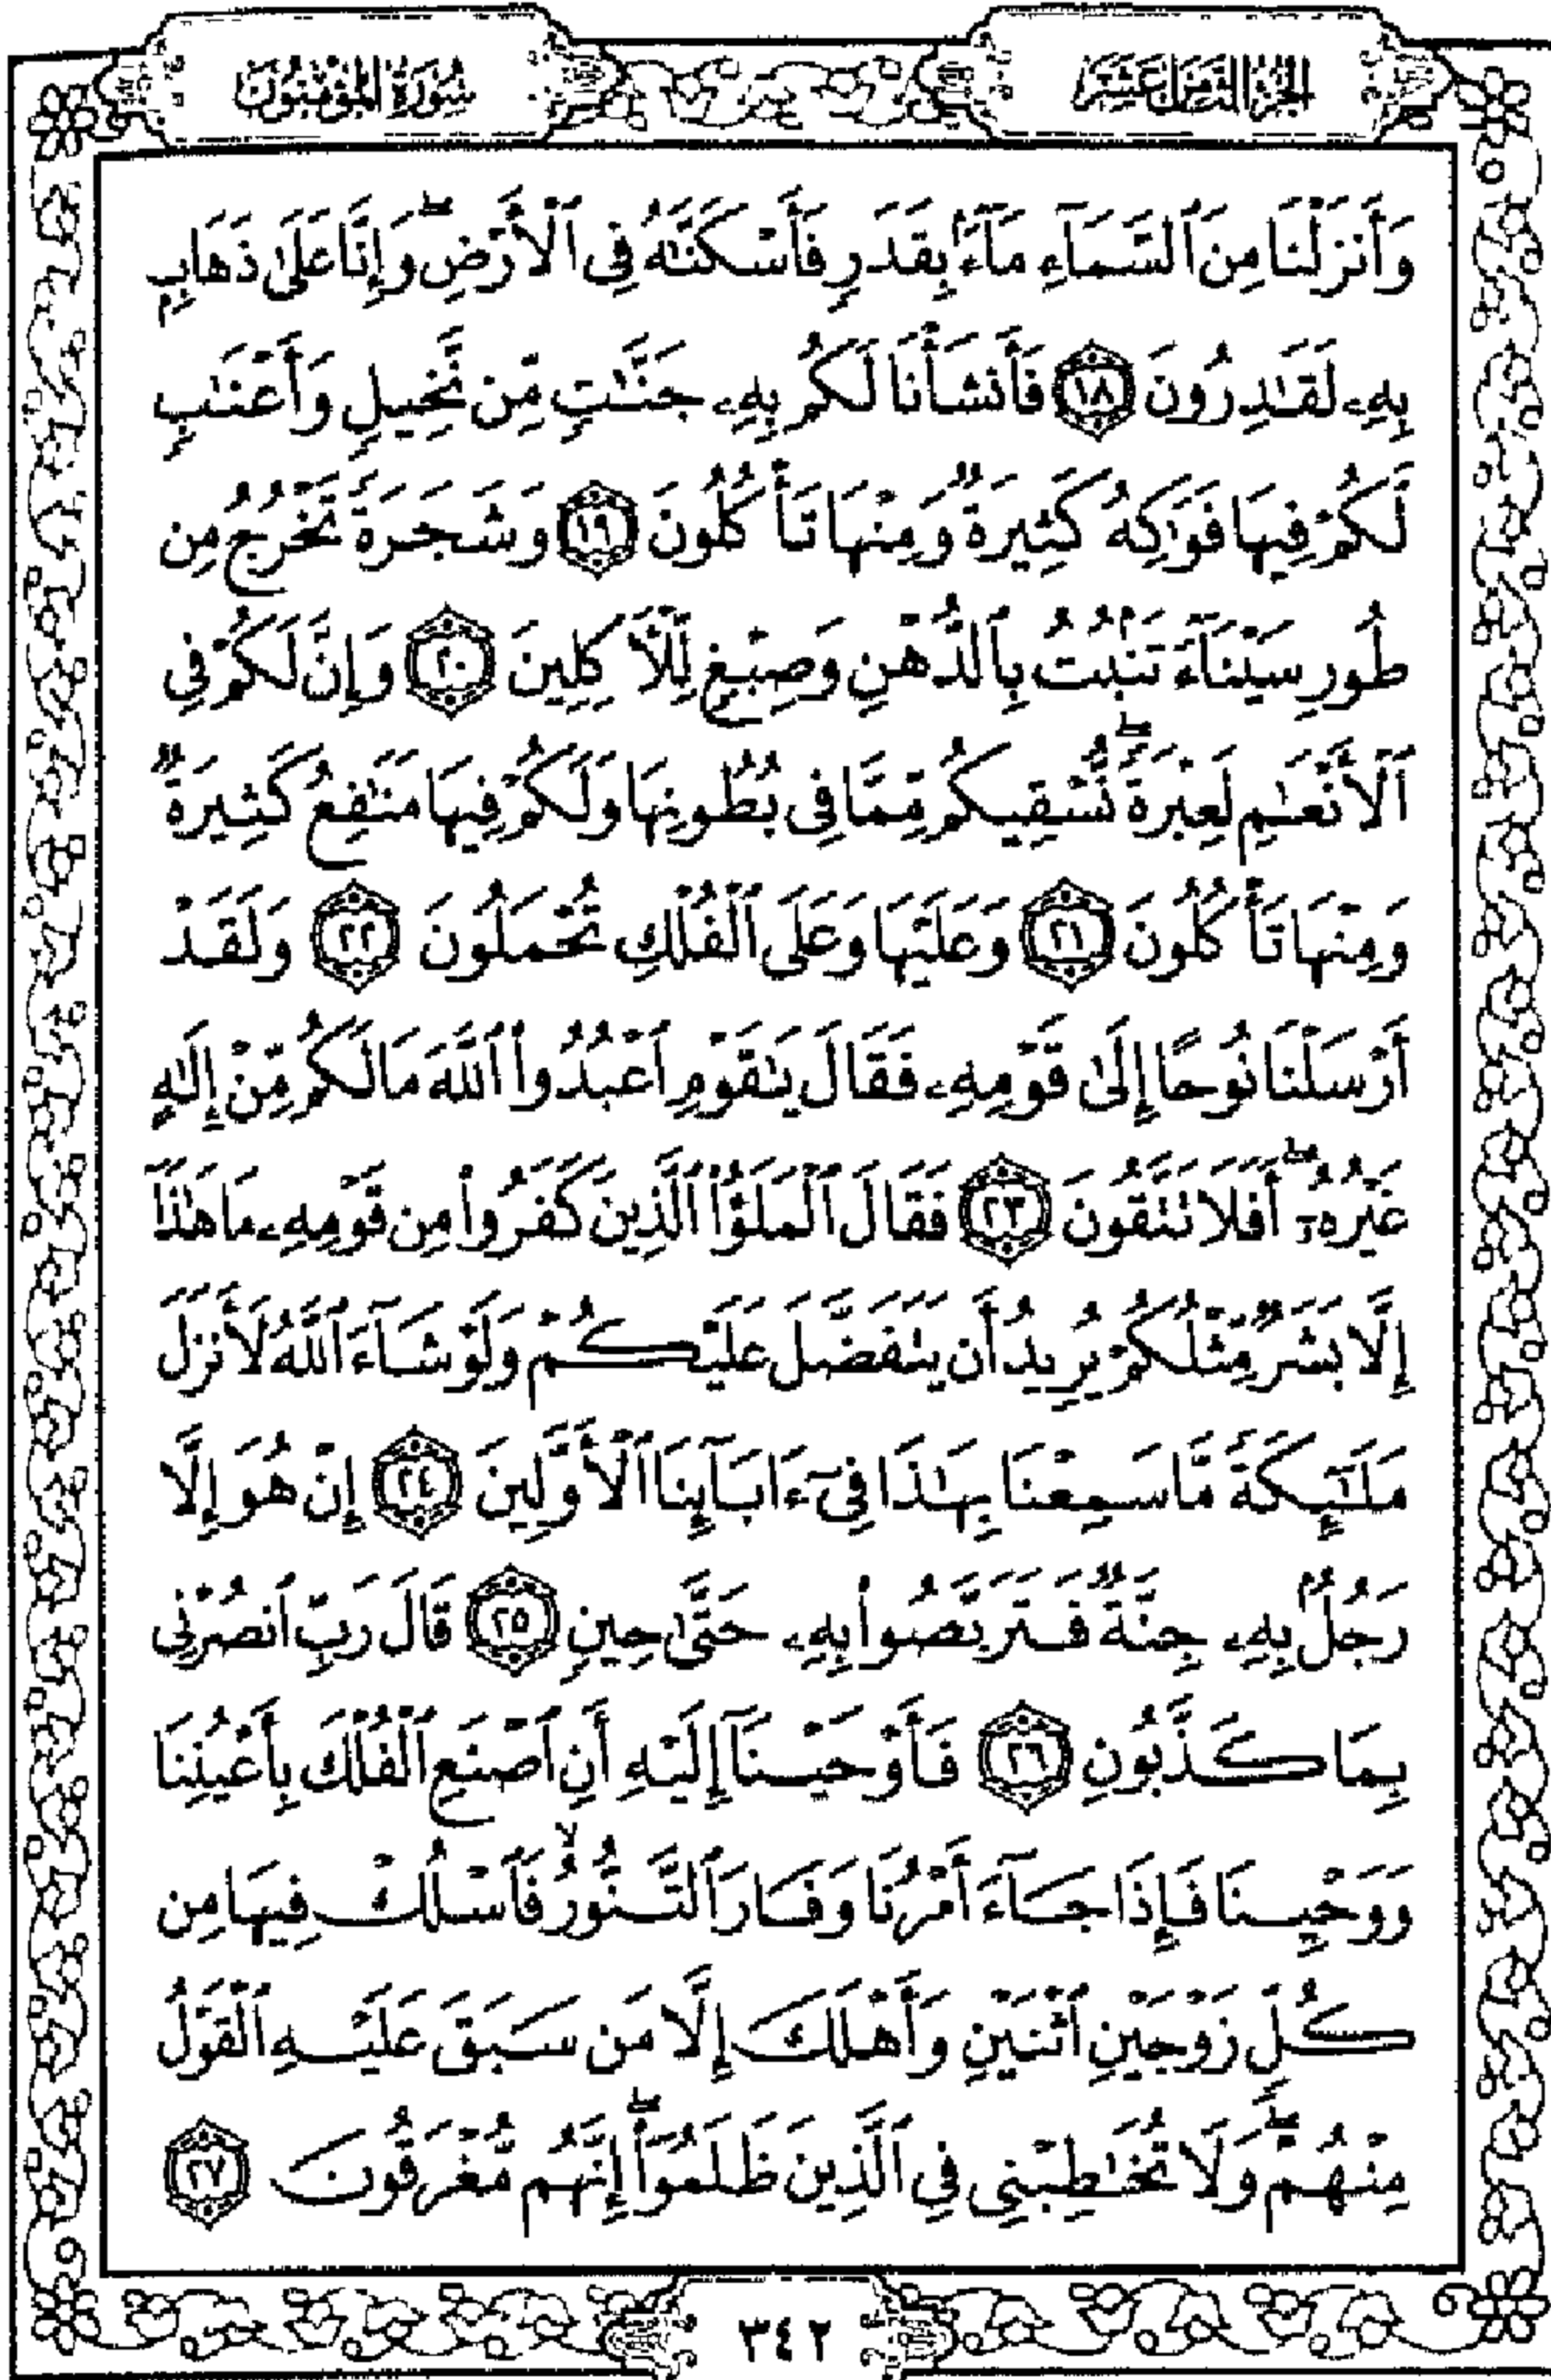 الجزء الثامن عشر
سورة المؤمنون
وَأَنزَلْنَا مِنَ ٱلسَّمَآءِ مَآءًۢ بِقَدَرٍ فَأَسْكَنَّٰهُ فِى ٱلْأَرْضِ ۖ وَإِنَّا عَلَىٰ ذَهَابٍۭ
بِهِۦ لَقَٰدِرُونَ ١٨ فَأَنشَأْنَا لَكُم بِهِۦ جَنَّٰتٍ مِّن نَّخِيلٍ وَأَعْنَٰبٍ
لَّكُمْ فِيهَا فَوَٰكِهُ كَثِيرَةٌ وَمِنْهَا تَأْكُلُونَ ١٩ وَشَجَرَةً تَخْرُجُ مِن
طُورِ سَيْنَآءَ تَنۢبُتُ بِٱلدُّهْنِ وَصِبْغٍ لِّلْءَاكِلِينَ ٢٠ وَإِنَّ لَكُمْ فِى
ٱلْأَنْعَٰمِ لَعِبْرَةً ۖ نُّسْقِيكُم مِّمَّا فِى بُطُونِهَا وَلَكُمْ فِيهَا مَنَٰفِعُ كَثِيرَةٌ
وَمِنْهَا تَأْكُلُونَ ٢١ وَعَلَيْهَا وَعَلَى ٱلْفُلْكِ تُحْمَلُونَ ٢٢ وَلَقَدْ
أَرْسَلْنَا نُوحًا إِلَىٰ قَوْمِهِۦ فَقَالَ يَٰقَوْمِ ٱعْبُدُوا۟ ٱللَّهَ مَا لَكُم مِّنْ إِلَٰهٍ
غَيْرُهُۥٓ ۖ أَفَلَا تَتَّقُونَ ٢٣ فَقَالَ ٱلْمَلَؤُا۟ ٱلَّذِينَ كَفَرُوا۟ مِن قَوْمِهِۦ مَا هَٰذَآ
إِلَّا بَشَرٌ مِّثْلُكُمْ يُرِيدُ أَن يَتَفَضَّلَ عَلَيْكُمْ وَلَوْ شَآءَ ٱللَّهُ لَأَنزَلَ
مَلَٰٓئِكَةً مَّا سَمِعْنَا بِهَٰذَا فِىٓ ءَابَآئِنَا ٱلْأَوَّلِينَ ٢٤ إِنْ هُوَ إِلَّا
رَجُلٌۢ بِهِۦ جِنَّةٌ فَتَرَبَّصُوا۟ بِهِۦ حَتَّىٰ حِينٍ ٢٥ قَالَ رَبِّ ٱنصُرْنِى
بِمَا كَذَّبُونِ ٢٦ فَأَوْحَيْنَآ إِلَيْهِ أَنِ ٱصْنَعِ ٱلْفُلْكَ بِأَعْيُنِنَا
وَوَحْيِنَا فَإِذَا جَآءَ أَمْرُنَا وَفَارَ ٱلتَّنُّورُ ۙ فَٱسْلُكْ فِيهَا مِن
كُلٍّ زَوْجَيْنِ ٱثْنَيْنِ وَأَهْلَكَ إِلَّا مَن سَبَقَ عَلَيْهِ ٱلْقَوْلُ
مِنْهُمْ ۖ وَلَا تُخَٰطِبْنِى فِى ٱلَّذِينَ ظَلَمُوٓا۟ ۖ إِنَّهُم مُّغْرَقُونَ ٢٧
٣٤٢